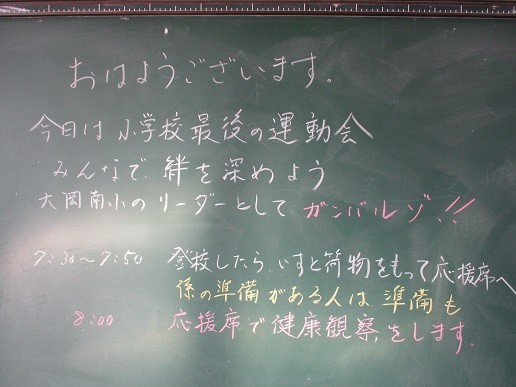 おはようございます。
今日は小学校最後の運動会
みんなで絆を深めよう
大岡南小のリーダーとして ガンバルゾ!!
7:30~7:50 登校したら、いすと荷物をもって応援席へ
係の準備がある人は、準備も
8:00 応援席で健康観察をします。